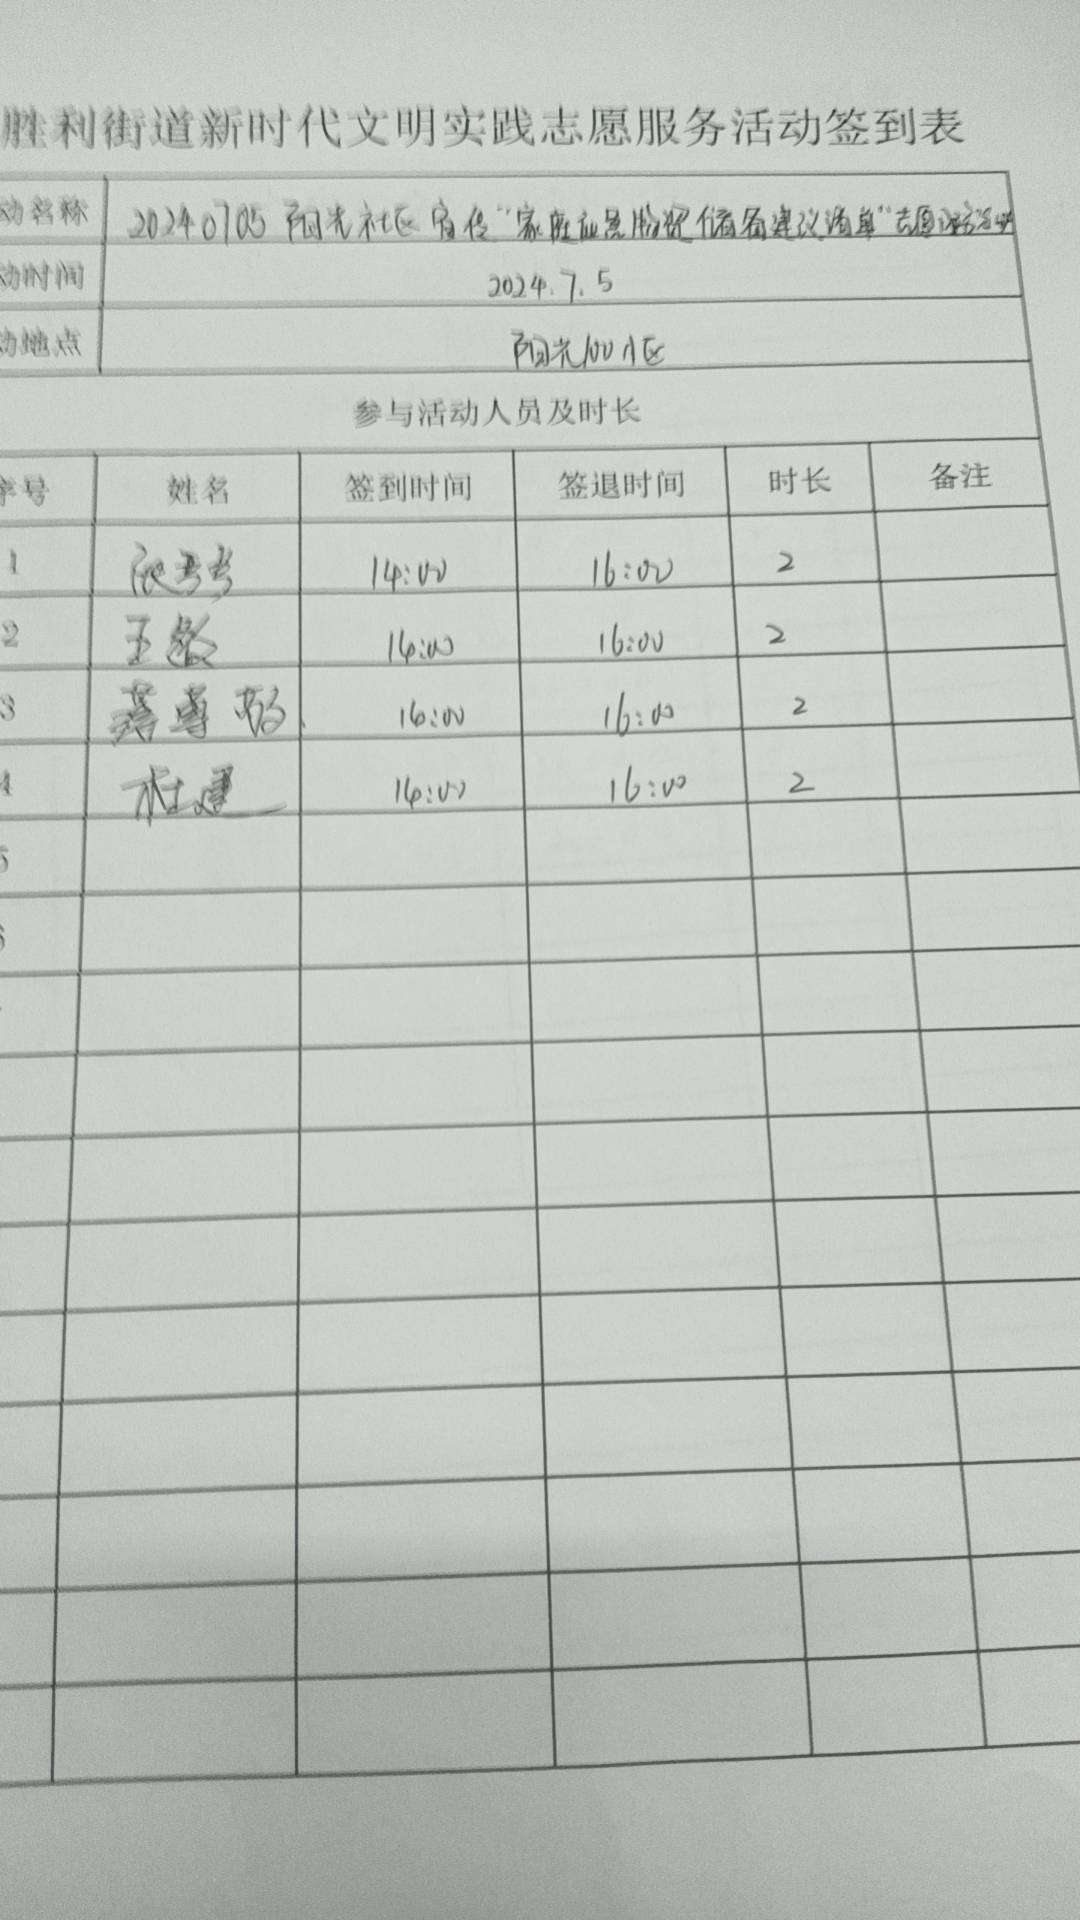 胜利街道新时代文明实践志愿服务活动签到表
动名称 20240705 阳光社区宣传“家庭应急物资储备建议清单”志愿服务活动
动时间 2024.7.5
动地点 阳光100小区
参与活动人员及时长
序号 姓名 签到时间 签退时间 时长 备注
1 14:00 16:00 2
2 王 14:00 16:00 2
3 尊 16:00 16:00 2
4 杜建 14:00 16:00 2
5
6